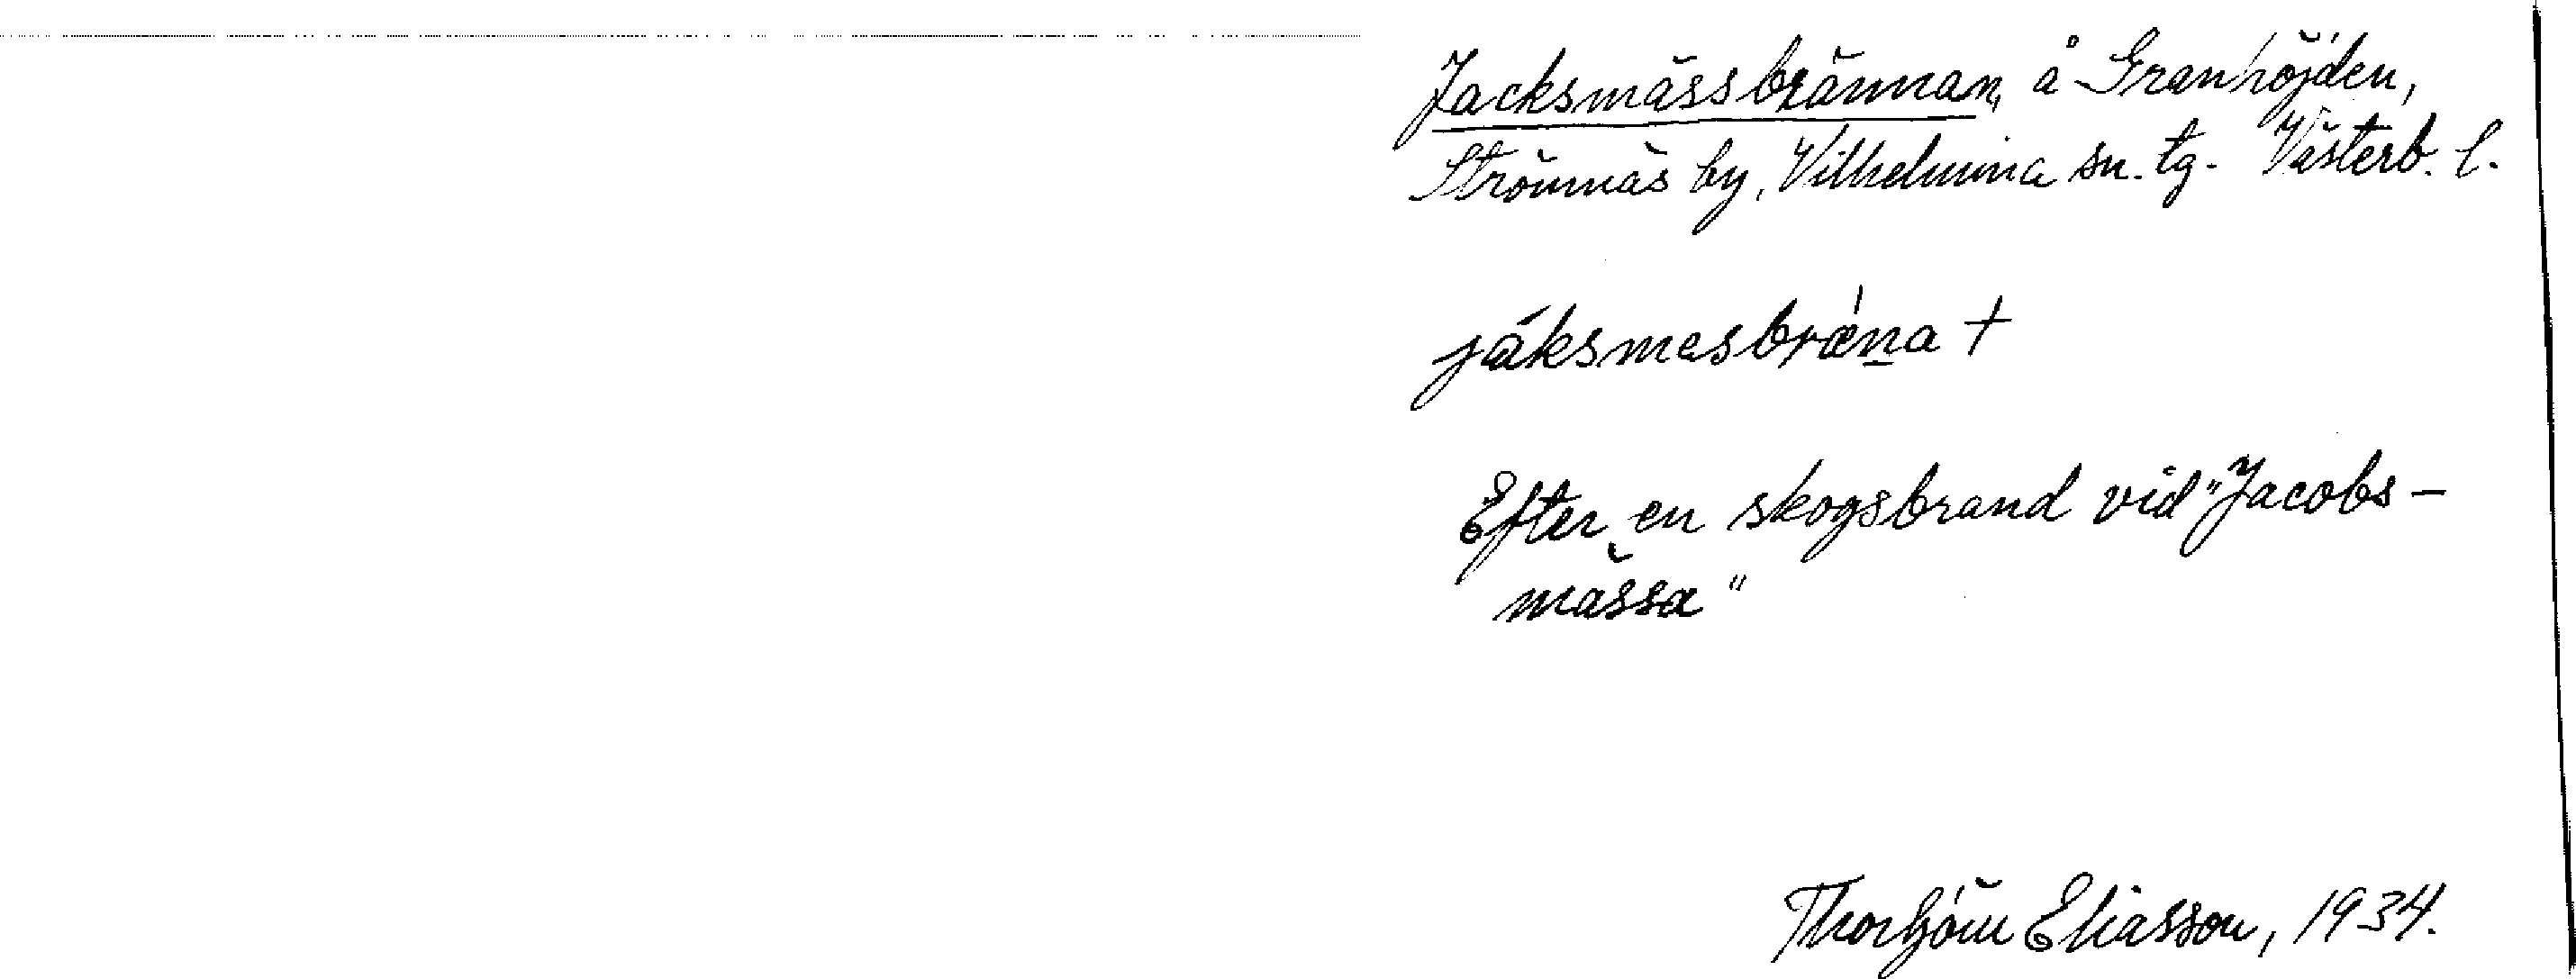 Jacksmässbrännan, å Granhöjden,
Strömnäs by, Vilhelmina sn. tg. Västerb. l.
jáksmesbræ̀na +
Efter en skogsbrand vid "Jacobs-
mässa"
Thorbjörn Eliasson, 1934.